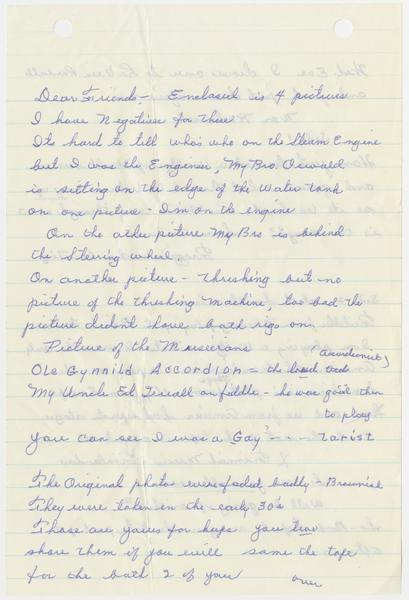 Dear Friends - Enclosed is 4 pictures
I have Negatives for these
Its hard to till who's who on the Steam Engine
but I was the Engineer, My Bro. Oswald
is sitting on the edge of the Water tank
on one picture - I'm on the engine
On the other picture My Bro is behind
the Steering wheel.
On another picture - Threshing but no
picture of the threshing Machine, too bad the
picture didn't have both rigs on
Picture of the Musicians
Ole Gynnild Accordion = the
My Uncle Ed Tervall on fiddle - he was good then
to play
You can see I was a Gay? - - - tarist
The Original photos were faded badly - Brownish
They were taken in the early 30's
Those are yours for keeps you two
share them if you will same the tape
for the both 2 of your
over